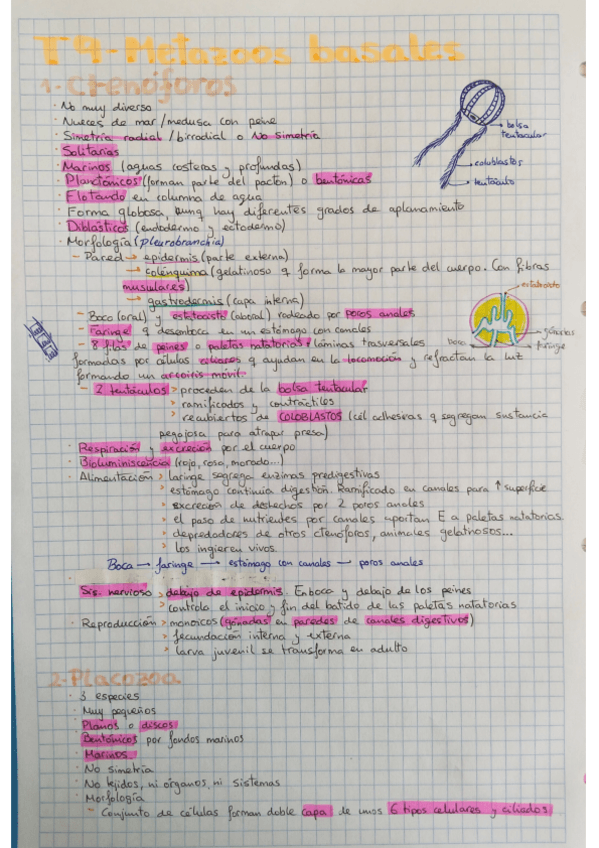 T4-Metazoos basales
1-Ctenóforos
· No muy diverso
· Nueces de mar/medusa con peine
· Simetría radial/birradial o No simetría
· Solitarias
· Marinos (aguas costeras y profundas)
· Planctónicos (forman parte del pacton) o bentónicas
· Flotando en columna de agua
· Forma globosa, aunq hay diferentes grados de aplanamiento
· Diblásticos (endodermo y ectodermo)
· Morfología (pleurobranchia)
- Pared → epidermis (parte externa)
→ colénquima (gelatinoso q forma la mayor parte del cuerpo. Con fibras
musculares)
→ gastrodermis (capa interna)
- Boca (oral) y estatocisto (aboral) rodeado por poros anales
- Faringe q desemboca en un estómago con canales
- 8 filas de peines o paletas natatorias: láminas trasversales
formadas por células ciliares q ayudan en la locomoción y refractan la luz
formando un arcoiris móvil.
- 2 tentáculos > proceden de la bolsa tentacular
> ramificados y contráctiles
> recubiertos de COLOBLASTOS (cél adhesivas q segregan sustancia
pegajosa para atrapar presa)
· Respiración y excreción por el cuerpo
· Bioluminiscencia (rojo, rosa, morado...)
· Alimentación > laringe segrega enzimas predigestivas
> estómago continúa digestión. Ramificado en canales para ↑ superficie
> excreción de desechos por 2 poros anales
> el paso de nutrientes por canales aportan E a paletas natatorias.
> depredadores de otros ctenóforos, animales gelatinosos...
> los ingieren vivos.
Boca → faringe → estómago con canales → poros anales
Sis. nervioso > debajo de epidermis. En boca y debajo de los peines
> controla el inicio y fin del batido de las paletas natatorias
· Reproducción > monoicos (gónadas en paredes de canales digestivos)
> fecundación interna y externa
> larva juvenil se transforma en adulto
2-Placozoa
· 3 especies
· Muy pequeños
· Planos o discos
· Bentónicos por fondos marinos
· Marinos
· No simetría
· No tejidos, ni órganos, ni sistemas
· Morfología
- Conjunto de células forman doble capa de unos 6 tipos celulares y ciliados
bolsa
tentacular
coloblastos
tentáculo
estatocisto
gónadas
boca
faringe